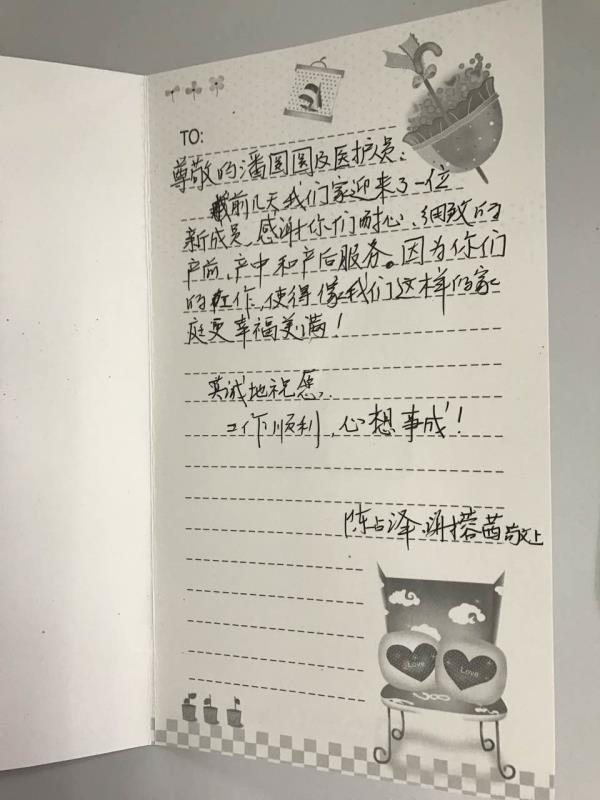 TO:
尊敬的潘圆圆及医护员：
前几天我们家迎来了一位
新成员,感谢你们耐心、细致的
产前、产中和产后服务。因为你们
的工作,使得像我们这样的家
庭更幸福美满!
真诚地祝愿,
工作顺利,心想事成!
陈占泽、谢 茜敬上
Love
Love